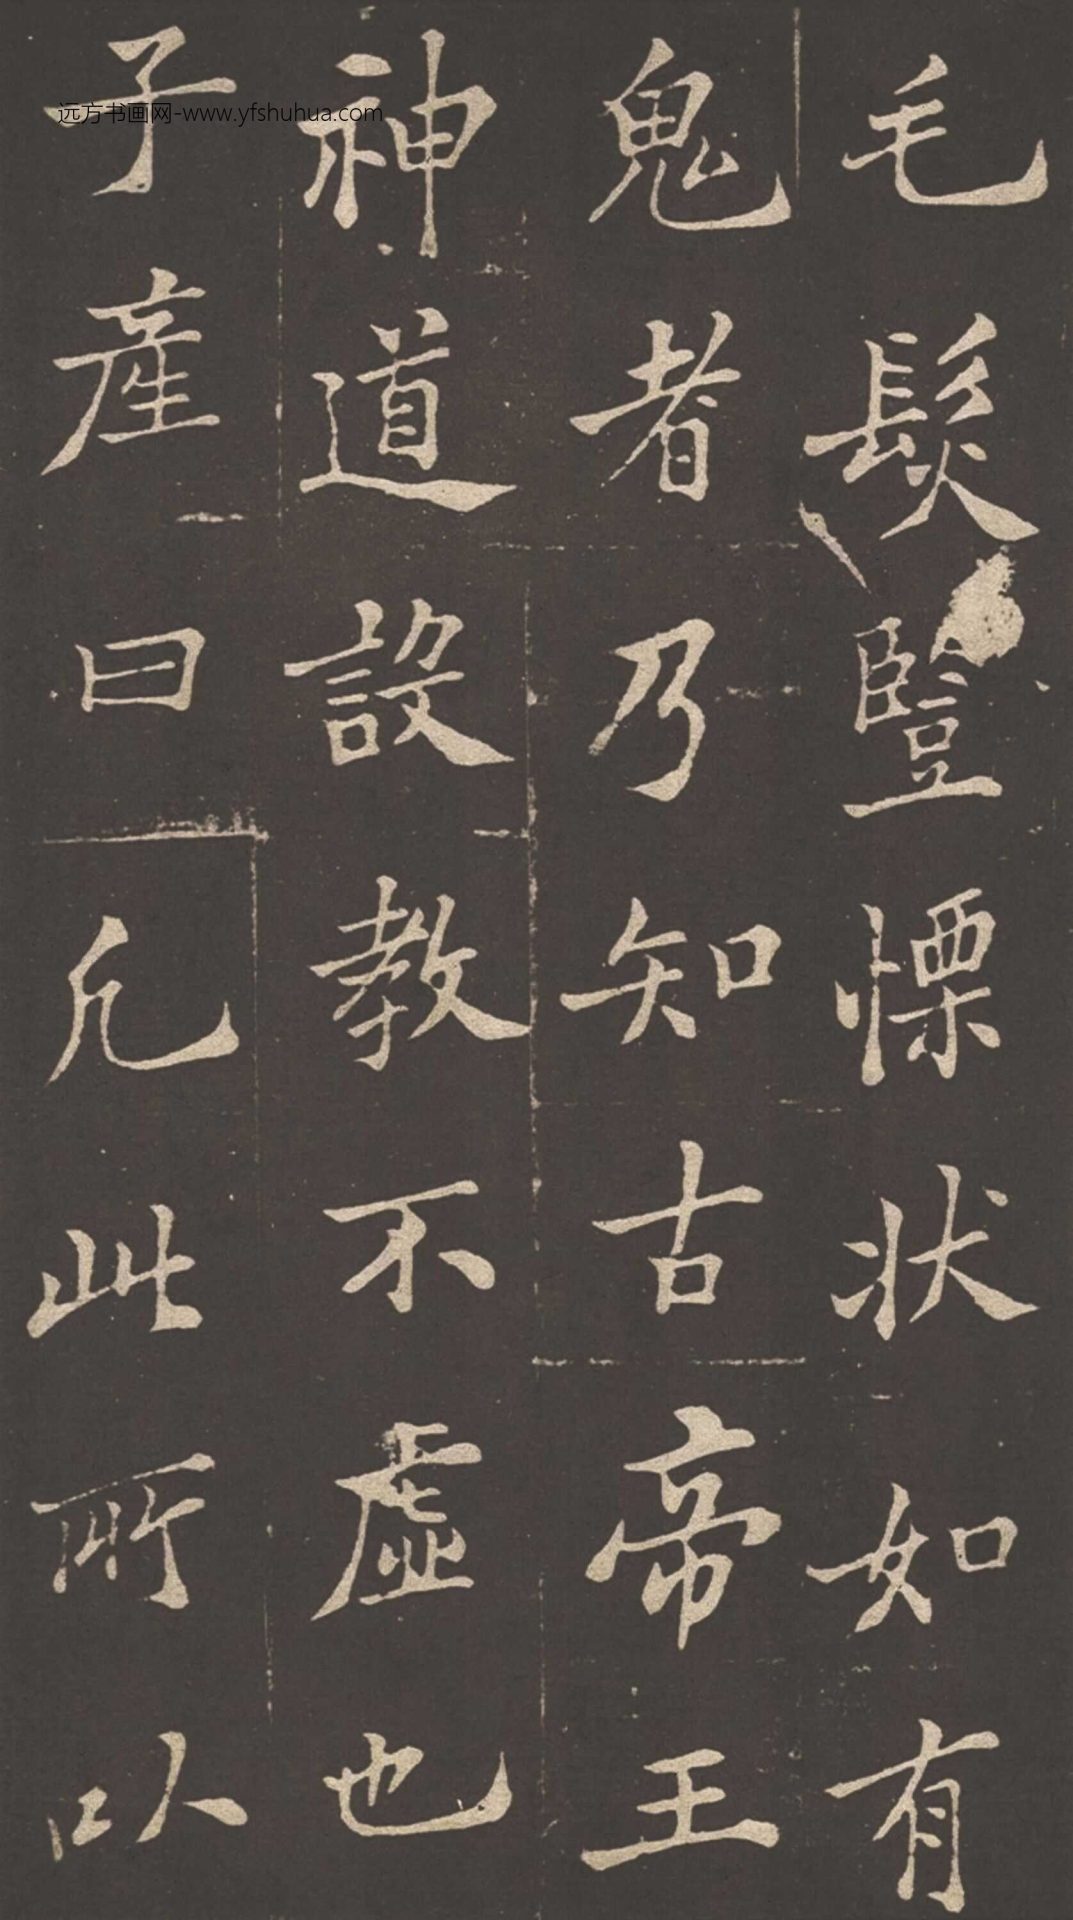 毛髮豎慄状如有
鬼者乃知古帝王
神道設教不虛也
子產曰凡此所以
远方书画网-www.yfshuhua.com